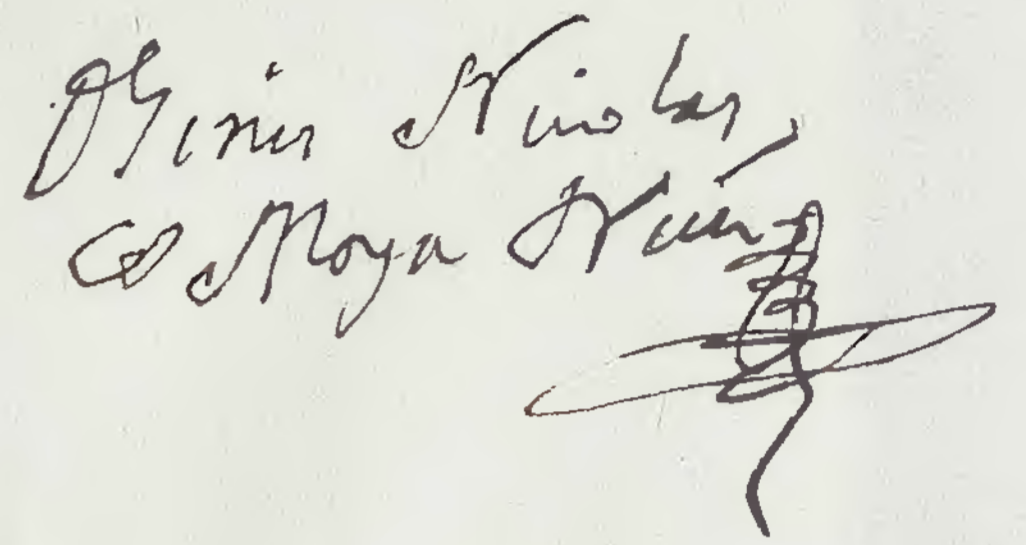 Ginés Nicolas
de Moya Núñez